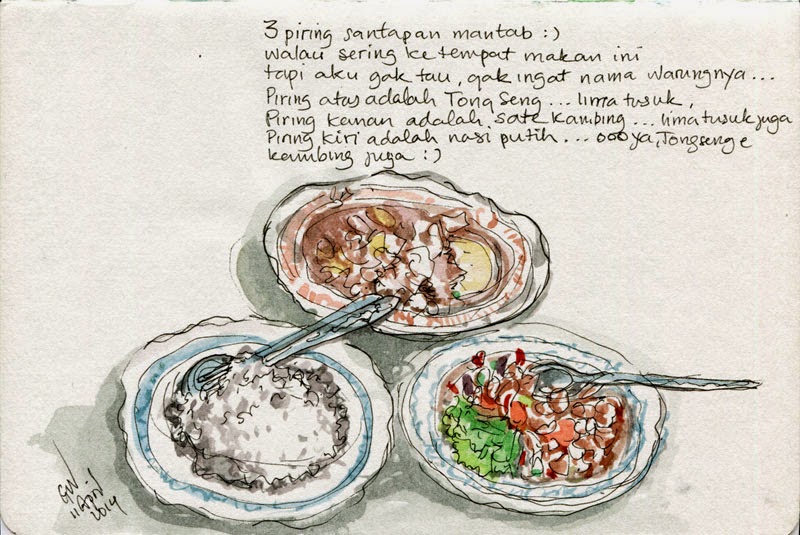 3 piring santapan mantab :)
walau sering ke tempat makan ini
tapi aku gak tau, gak ingat nama warungnya...
Piring atas adalah Tong Seng... lima tusuk,
Piring kanan adalah sate kambing... lima tusuk juga
Piring kiri adalah nasi putih... ooo ya, Tongseng e
kambing juga :)
GW
11 April
2014